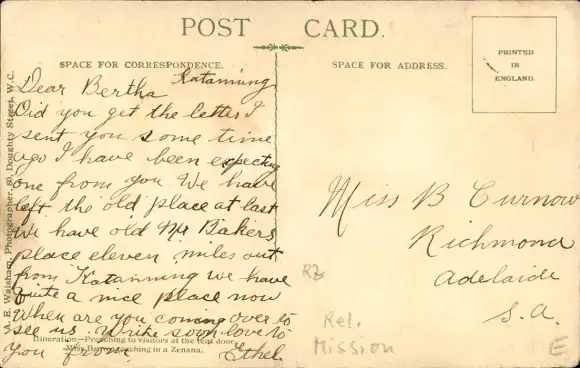 POST CARD.
SPACE FOR CORRESPONDENCE.
SPACE FOR ADDRESS.
PRINTED
IN
ENGLAND.
Katanning
Dear Bertha
Did you get the letter I
sent you some time
ago I have been expecting
one from you We have
left the old place at last
We have old Mr Bakers
place eleven miles out
from Katanning we have
quite a nice place now
When are you coming over to
see us. Write soon love to
you from Ethel.
Miss B Curnow
Richmond
Adelaide
S.A.
RZ
Rel.
Mission
E
A. E. Walsham, Photographer, 60, Doughty Street, W.C.
Itineration—Preaching to visitors at the tent door.
Miss teaching in a Zenana.